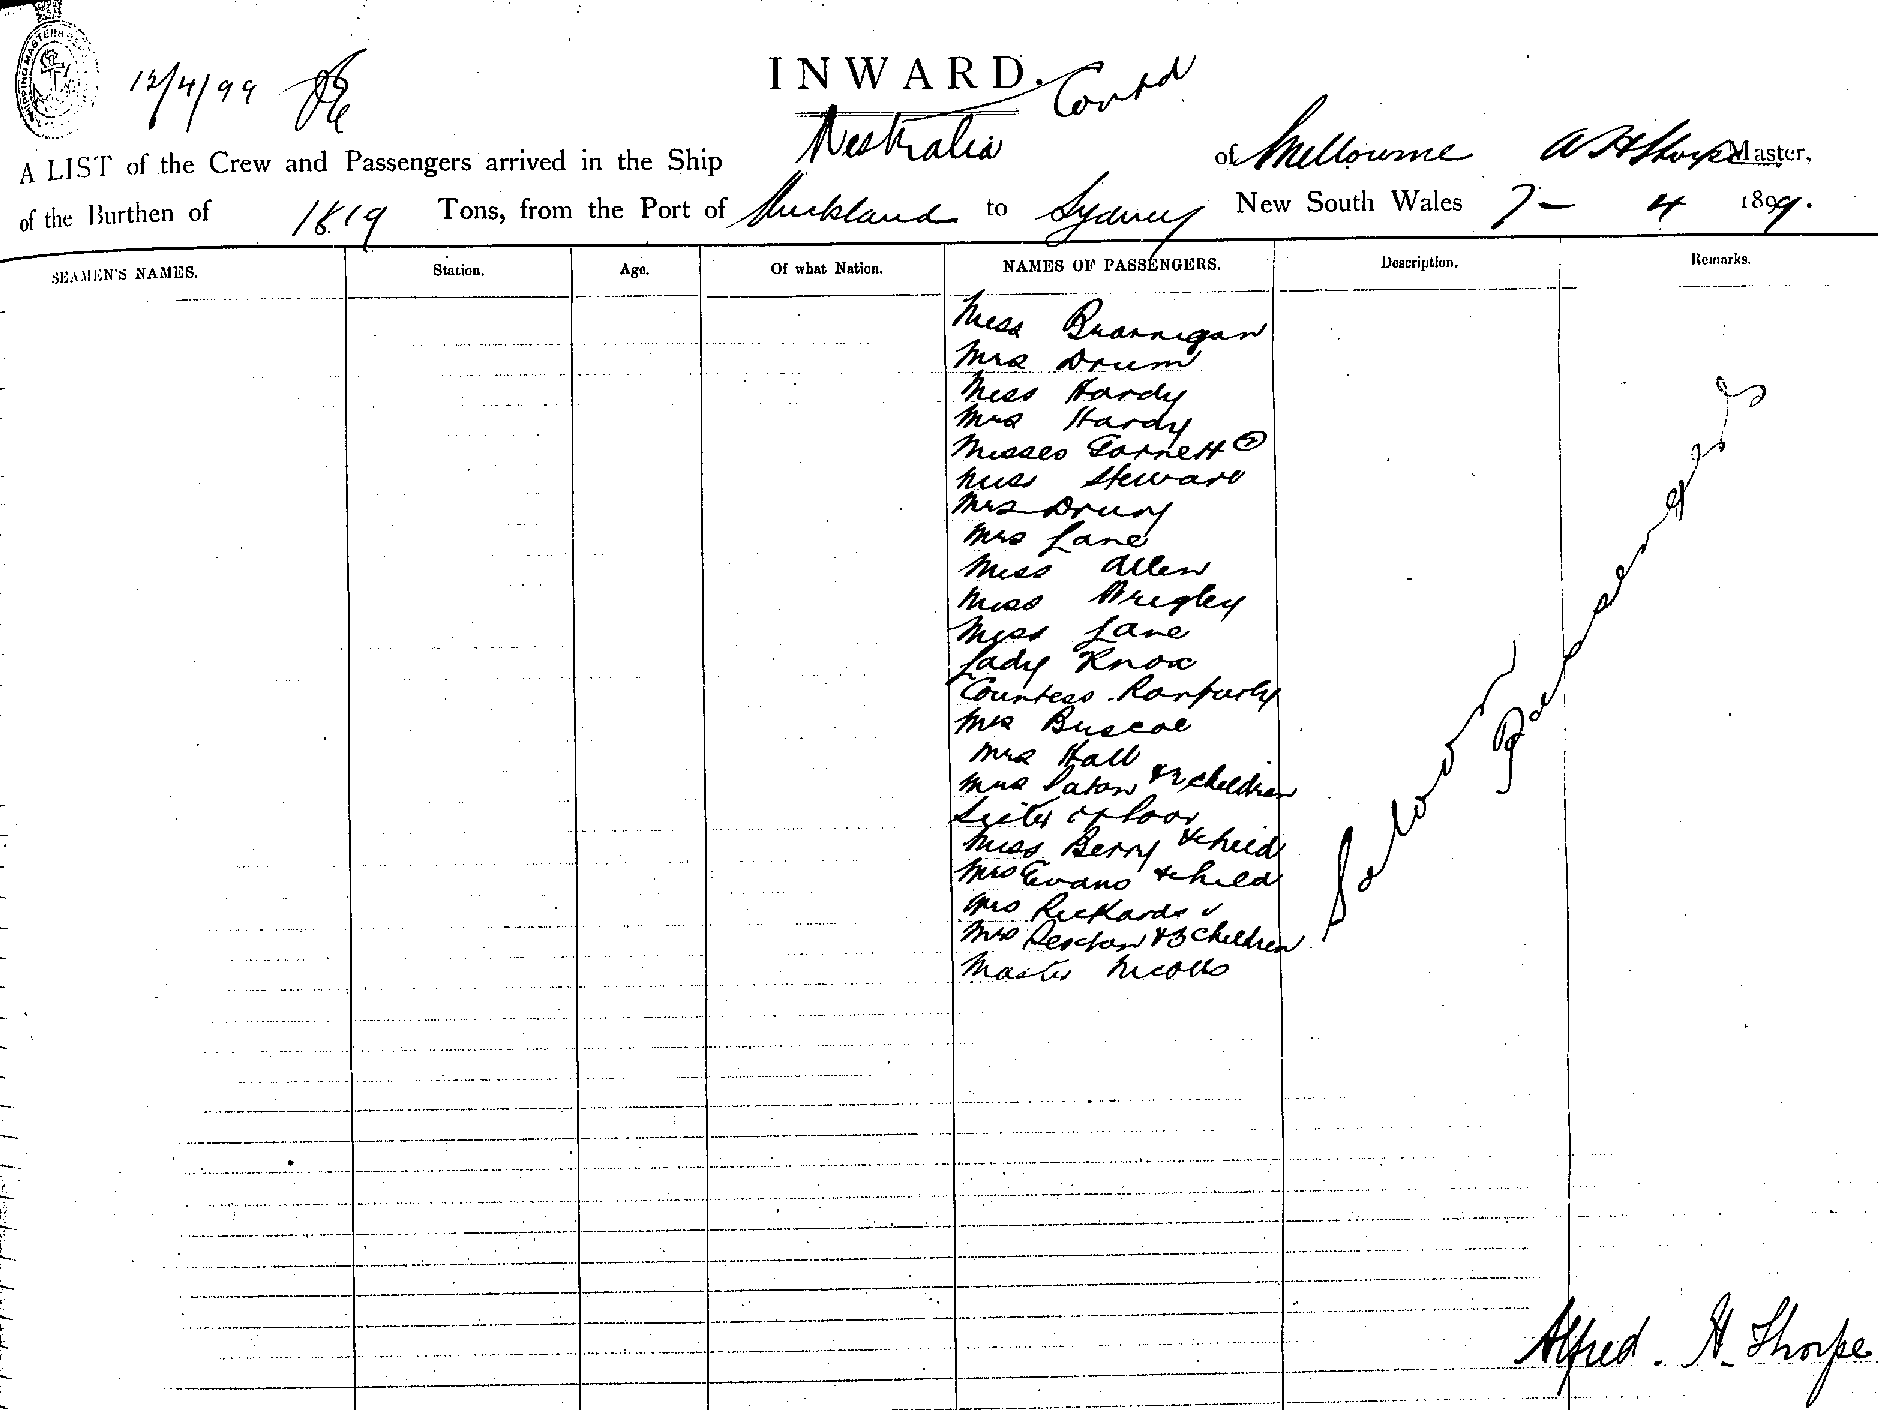 12/4/99
INWARD. Contd
A LIST of the Crew and Passengers arrived in the Ship Westralia of Melbourne A H Thorpe Master,
of the Burthen of 1819 Tons, from the Port of Auckland to Sydney New South Wales 7 - 4 1899.
SEAMEN'S NAMES. Station. Age. Of what Nation. NAMES OF PASSENGERS. Description. Remarks.
Miss Brannigan
Mrs Drum
Miss Hardy
Mrs Hardy
Misses Garnett (2)
Miss Steward
Mrs Drury
Mrs Lane
Miss Allen
Miss Wrigley
Miss Lane
Lady Knox
Countess Ranfurly
Mrs Buscoe
Mrs Hall
Mrs Paton & 2 children
Sister of Poor
Miss Berry & child
Mrs Evans & child
Mrs Rickards
Mrs Sexton & 3 children
Master Nicolls
Saloon Passengers
Alfred. H. Thorpe